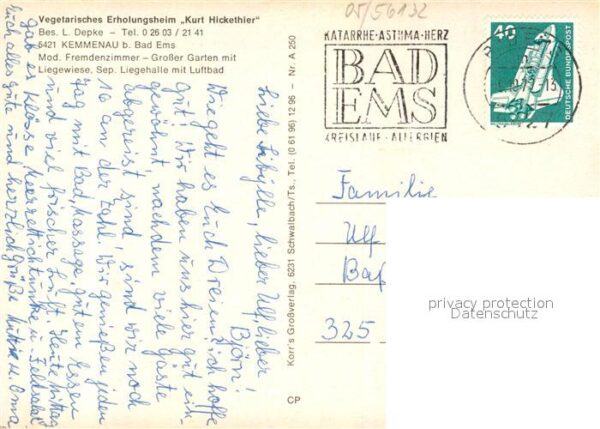 Vegetarisches Erholungsheim „Kurt Hickethier“
Bes. L. Depke – Tel. 0 26 03 / 21 41
5421 KEMMENAU b. Bad Ems
Mod. Fremdenzimmer – Großer Garten mit
Liegewiese, Sep. Liegehalle mit Luftbad
05/56132
KATARRHE·ASTHMA·HERZ
BAD
EMS
KREISLAUF·ALLERGIEN
40
DEUTSCHE BUNDESPOST
Korr's Großverlag, 6231 Schwalbach/Ts., Tel. (0 61 96) 12 96 – Nr. A 250
CP
Liebe Sibylle, lieber Ulf, lieber
Björn!
Wie geht es Euch Dreien, ich hoffe
gut! Wir haben uns hier gut ein-
gewöhnt, nachdem viele Gäste
abgereist sind, sind wir noch
16 an der Zahl. Wir genießen jeden
Tag mit Bad, Massage, gutem Essen
und viel frischer Luft. Heute Mittag
gab es Klösse, Meerrettichtunke u. Feldsalat
Euch alles gute und herzliche Grüße Mutti u. Oma
Familie
Ulf
325
privacy protection
Datenschutz